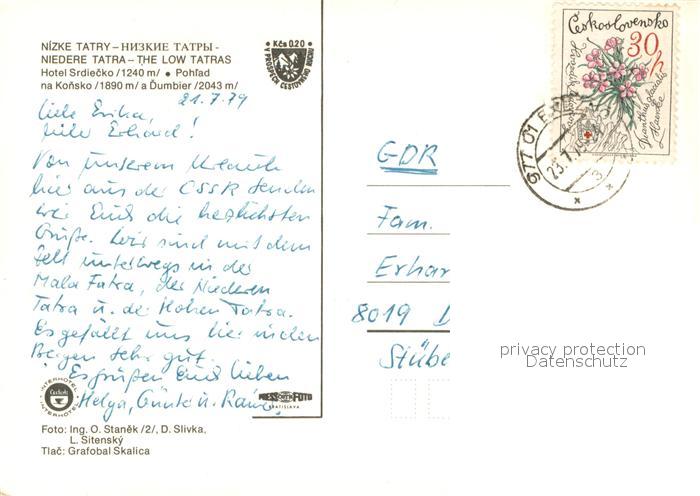 NÍZKE TATRY – НИЗКИЕ ТАТРЫ -
NIEDERE TATRA – THE LOW TATRAS
Hotel Srdiečko /1240 m/ • Pohľad
na Koňsko /1890 m/ a Ďumbier /2043 m/
• Kčs 0.20 •
V PROSPECH CESTOVNÉHO RUCHU
21.7.79
Liebe Erika,
lieber Erhard!
Von unserem Urlaub
hier aus der CSSR senden
wir Euch die herzlichsten
Grüße. Wir sind mit dem
Zelt unterwegs in der
Mala Fatra, der Niederen
Tatra u. der Hohen Tatra.
Es gefällt uns hier in den
Bergen sehr gut.
Es grüßen Euch lieben
Helga, Günter u.
INTERHOTEL
Čedok
INTERHOTEL
PRESSFOTO
BRATISLAVA
Foto: Ing. O. Staněk /2/, D. Slivka,
L. Sitenský
Tlač: Grafobal Skalica
Československo
30 h
Dianthus glacialis
Haenke
977 01
23.7.79
GDR
Fam.
Erhar
8019 D
Stübe
privacy protection
Datenschutz